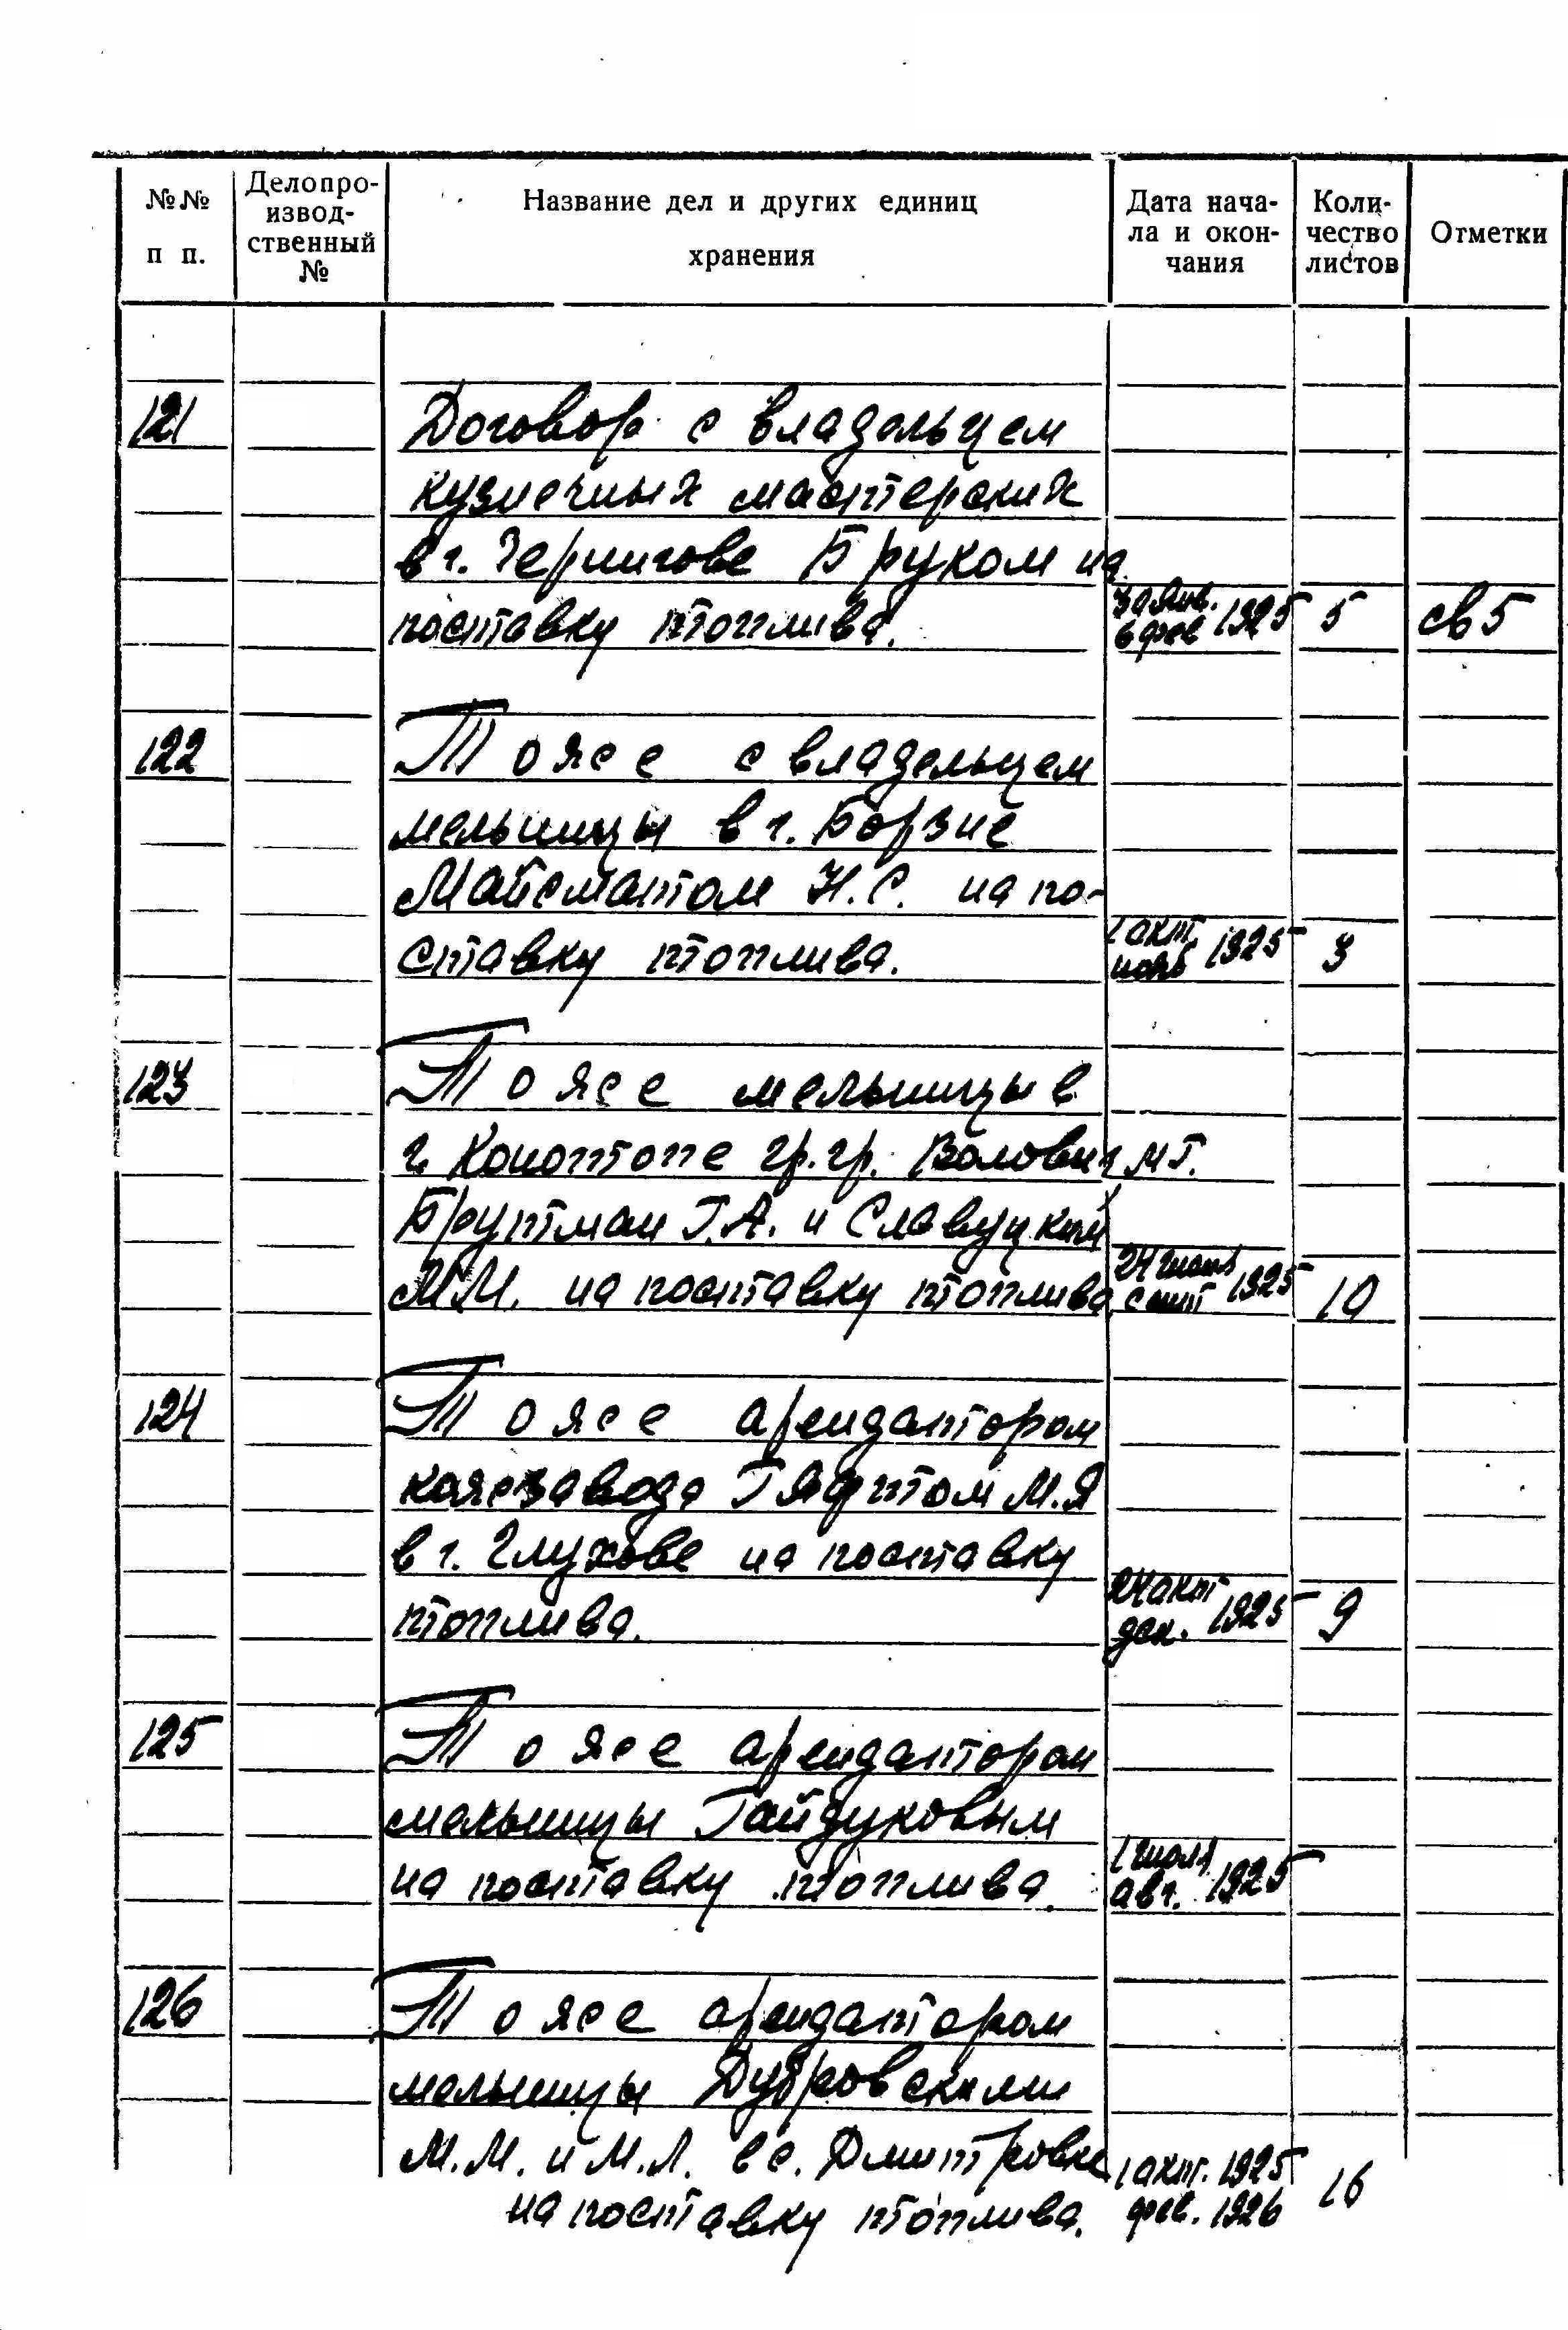 №№ п п.
Делопро-
извод-
ственный
№
Название дел и других единиц
хранения
Дата нача-
ла и окон-
чания
Коли-
чество
листов
Отметки
121 Договор с владельцем
кузнечных мастерских
в г. Чернигове Бруком на
поставку топлива. 30 янв. 6 фев 1925 5 св 5
122 То же с владельцем
мельницы в г. Борзне
Н.С. на по-
ставку топлива. 1 окт. нояб 1925 3
123 То же мельницы в
г. Конотопе гр. гр. Волович М.Г.
Брутман Г.А. и Славуцким
М.М. на поставку топлива 24 сент 1925 10
124 То же арендатором
кожзавода М.Я
в г. Глухове на поставку
топлива. 24 окт дек. 1925 9
125 То же арендатором
мельницы Гайдуковым
на поставку топлива. 1 июля авг. 1925
126 То же арендатором
мельницы Дубровскими
М.М. и М.Л. в с. Дмитровке 1 окт. 1925
на поставку топлива. фев. 1926 16